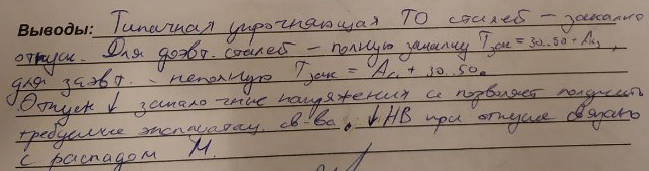 Выводы: Типичная упрочняющая ТО сталей – закалка
отпуск. Для доэвт. сталей – полную закалку Тзак = 30..50 + Ас3,
для заэвт. – неполную Тзак = Ас1 + 30..50.
Отпуск ↓ закалочные напряжения и позволяет получить
требуемые эксплуатац. св-ва. ↓ НВ при отпуске связано
с распадом М.